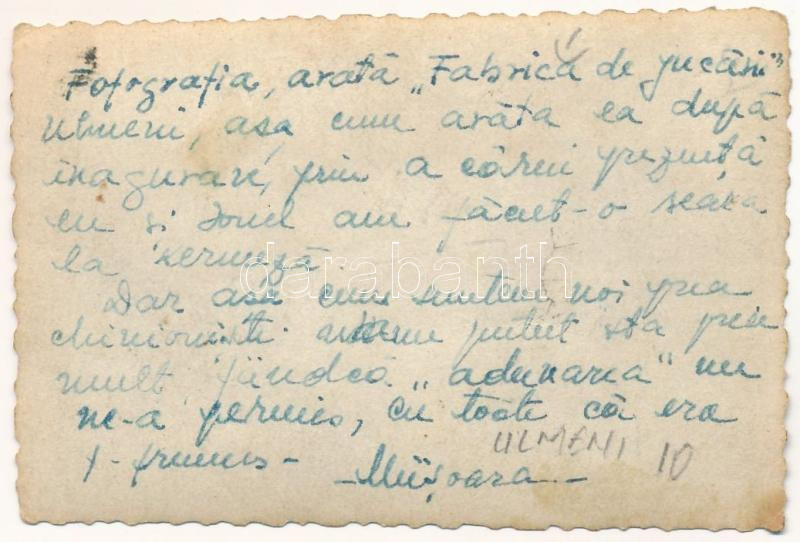 Fotografia, arată „Fabrica de jucării"
Ulmeni, așa cum arăta ea după
inagurare, prin a cărei prezență
eu și Ionel am făcut-o seara
la kermeză
Dar așa cum suntem, noi prea
chimoniști n-am putut sta prea
mult fiindcă „adunarea" nu
ne-a permis, cu toate că era
f. frumos -
ULMENI 10
- Miișoara -
darabanth